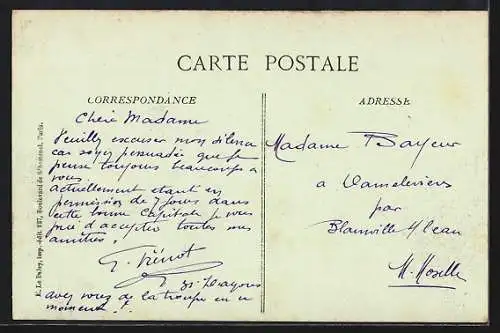 CARTE POSTALE
CORRESPONDANCE
ADRESSE
Chère Madame
Veuillez excuser mon silence
car soyez persuadée que je
pense toujours beaucoup a
vous.
actuellement etant en
permission de 7 jours dans
cette bonne Capitale je vous
prie d'accepter toutes mes
amitiés !
G.
31e Dragons
avez vous de la troupe en ce
moment !
Madame Bayeur
a Damelevières
par
Blainville s/ l'eau
M. Moselle
E. Le Deley, imp.-édit. 127, Boulevard de Sébastopol, Paris.